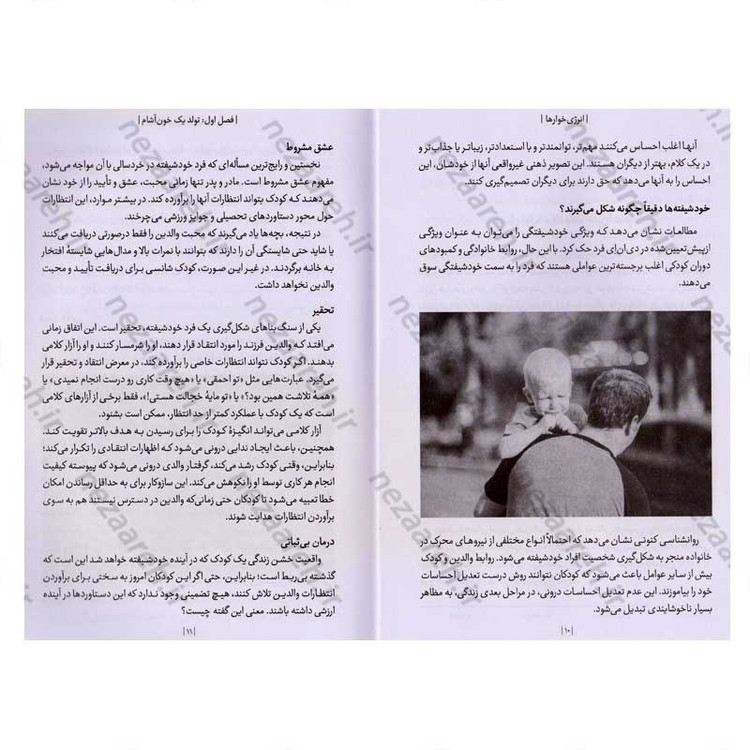 | انرژی‌خوارها |
آنها اغلب احساس می‌کنند مهم‌تر، توانمندتر و با استعدادتر، زیباتر یا جذاب‌تر و
در یک کلام، بهتر از دیگران هستند. این تصویر ذهنی غیرواقعی آنها از خودشان، این
احساس را به آنها می‌دهد که حق دارند برای دیگران تصمیم‌گیری کنند.
خودشیفته‌ها دقیقاً چگونه شکل می‌گیرند؟
مطالعات نشان می‌دهد که ویژگی خودشیفتگی را می‌توان به عنوان ویژگی
از‌پیش‌تعیین‌شده در دی‌ان‌اِی فرد حک کرد. با این حال، روابط خانوادگی و کمبودهای
دوران کودکی اغلب برجسته‌ترین عواملی هستند که فرد را به سمت خودشیفتگی سوق
می‌دهند.
روانشناسی کنونی نشان می‌دهد که احتمالاً انواع مختلفی از نیروهای محرک در
خانواده منجر به شکل‌گیری شخصیت افراد خودشیفته می‌شود. روابط والدین و کودک
بیش از سایر عوامل باعث می‌شود که کودکان نتوانند روش درست تعدیل احساسات
خود را بیاموزند. این عدم تعدیل احساسات درونی، در مراحل بعدی زندگی، به مظاهر
بسیار ناخوشایندی تبدیل می‌شود.
| ۱۰ |
| فصل اول: تولد یک خون‌آشام |
عشق مشروط
نخستین و رایج‌ترین مسأله‌ای که فرد خودشیفته در خردسالی با آن مواجه می‌شود،
مفهوم عشق مشروط است. مادر و پدر تنها زمانی محبت، عشق و تأیید را از خود نشان
می‌دهند که کودک بتواند انتظارات آنها را برآورده کند. در بیشتر موارد، این انتظارات
حول محور دستاوردهای تحصیلی و جوایز ورزشی می‌چرخند.
در نتیجه، بچه‌ها یاد می‌گیرند که محبت والدین را فقط درصورتی دریافت می‌کنند
یا شاید حتی شایستگی آن را دارند که بتوانند با نمرات بالا و مدال‌هایی شایستهٔ افتخار
به خانه برگردند. در غیر این صورت، کودک شانسی برای دریافت تأیید و محبت
والدین نخواهد داشت.
تحقیر
یکی از سنگ‌بناهای شکل‌گیری یک فرد خودشیفته، تحقیر است. این اتفاق زمانی
می‌افتد که والدین فرزند را مورد انتقاد قرار دهند، او را شرمسار کنند و او را آزار کلامی
بدهند. اگر کودک نتواند انتظارات خاصی را برآورده کند، در معرض انتقاد و تحقیر قرار
می‌گیرد. عبارت‌هایی مثل «تو احمقی» یا «هیچ وقت کاری رو درست انجام نمیدی» یا
«همهٔ تلاشت همین بود؟» یا «تو مایهٔ خجالت هستی!»، فقط برخی از آزارهای کلامی
است که یک کودک با عملکرد کمتر از حد انتظار، ممکن است بشنود.
آزار کلامی می‌تواند انگیزهٔ کودک را برای رسیدن به هدف بالاتر تقویت کند.
همچنین، باعث ایجاد ندایی درونی می‌شود که اظهارات انتقادی را تکرار می‌کند؛
بنابراین، وقتی کودک رشد می‌کند، گرفتار ندای درونی می‌شود که پیوسته کیفیت
انجام هر کاری توسط او را نکوهش می‌کند. این سازوکار برای به حداقل رساندن امکان
خطا تعبیه می‌شود تا کودکان حتی زمانی‌که والدین در دسترس نیستند هم به سوی
برآوردن انتظارات هدایت شوند.
درمان بی‌ثباتی
واقعیت خشن زندگی یک کودک که در آینده خودشیفته خواهد شد این است که
گذشته بی‌ربط است؛ بنابراین، حتی اگر این کودکان امروز به سختی برای برآوردن
انتظارات والدین تلاش کنند، هیچ تضمینی وجود ندارد که این دستاوردها در آینده
ارزشی داشته باشند. معنی این گفته چیست؟
| ۱۱ |
nezaareh.ir